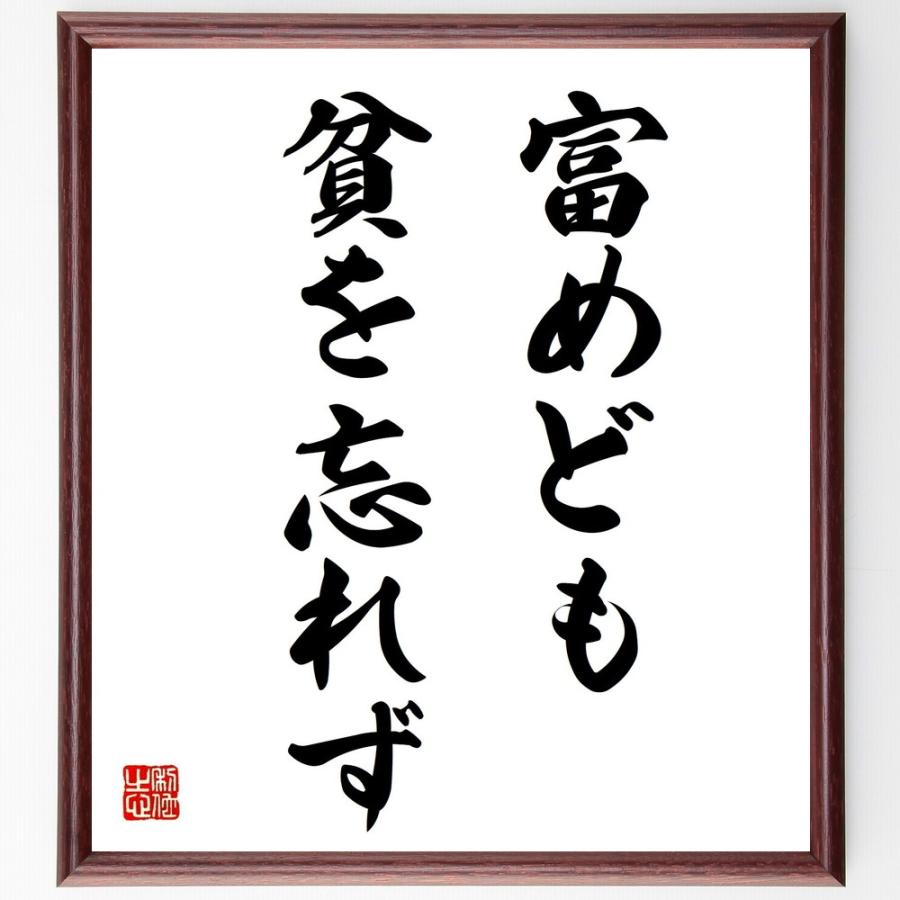 富めども
貧を忘れず